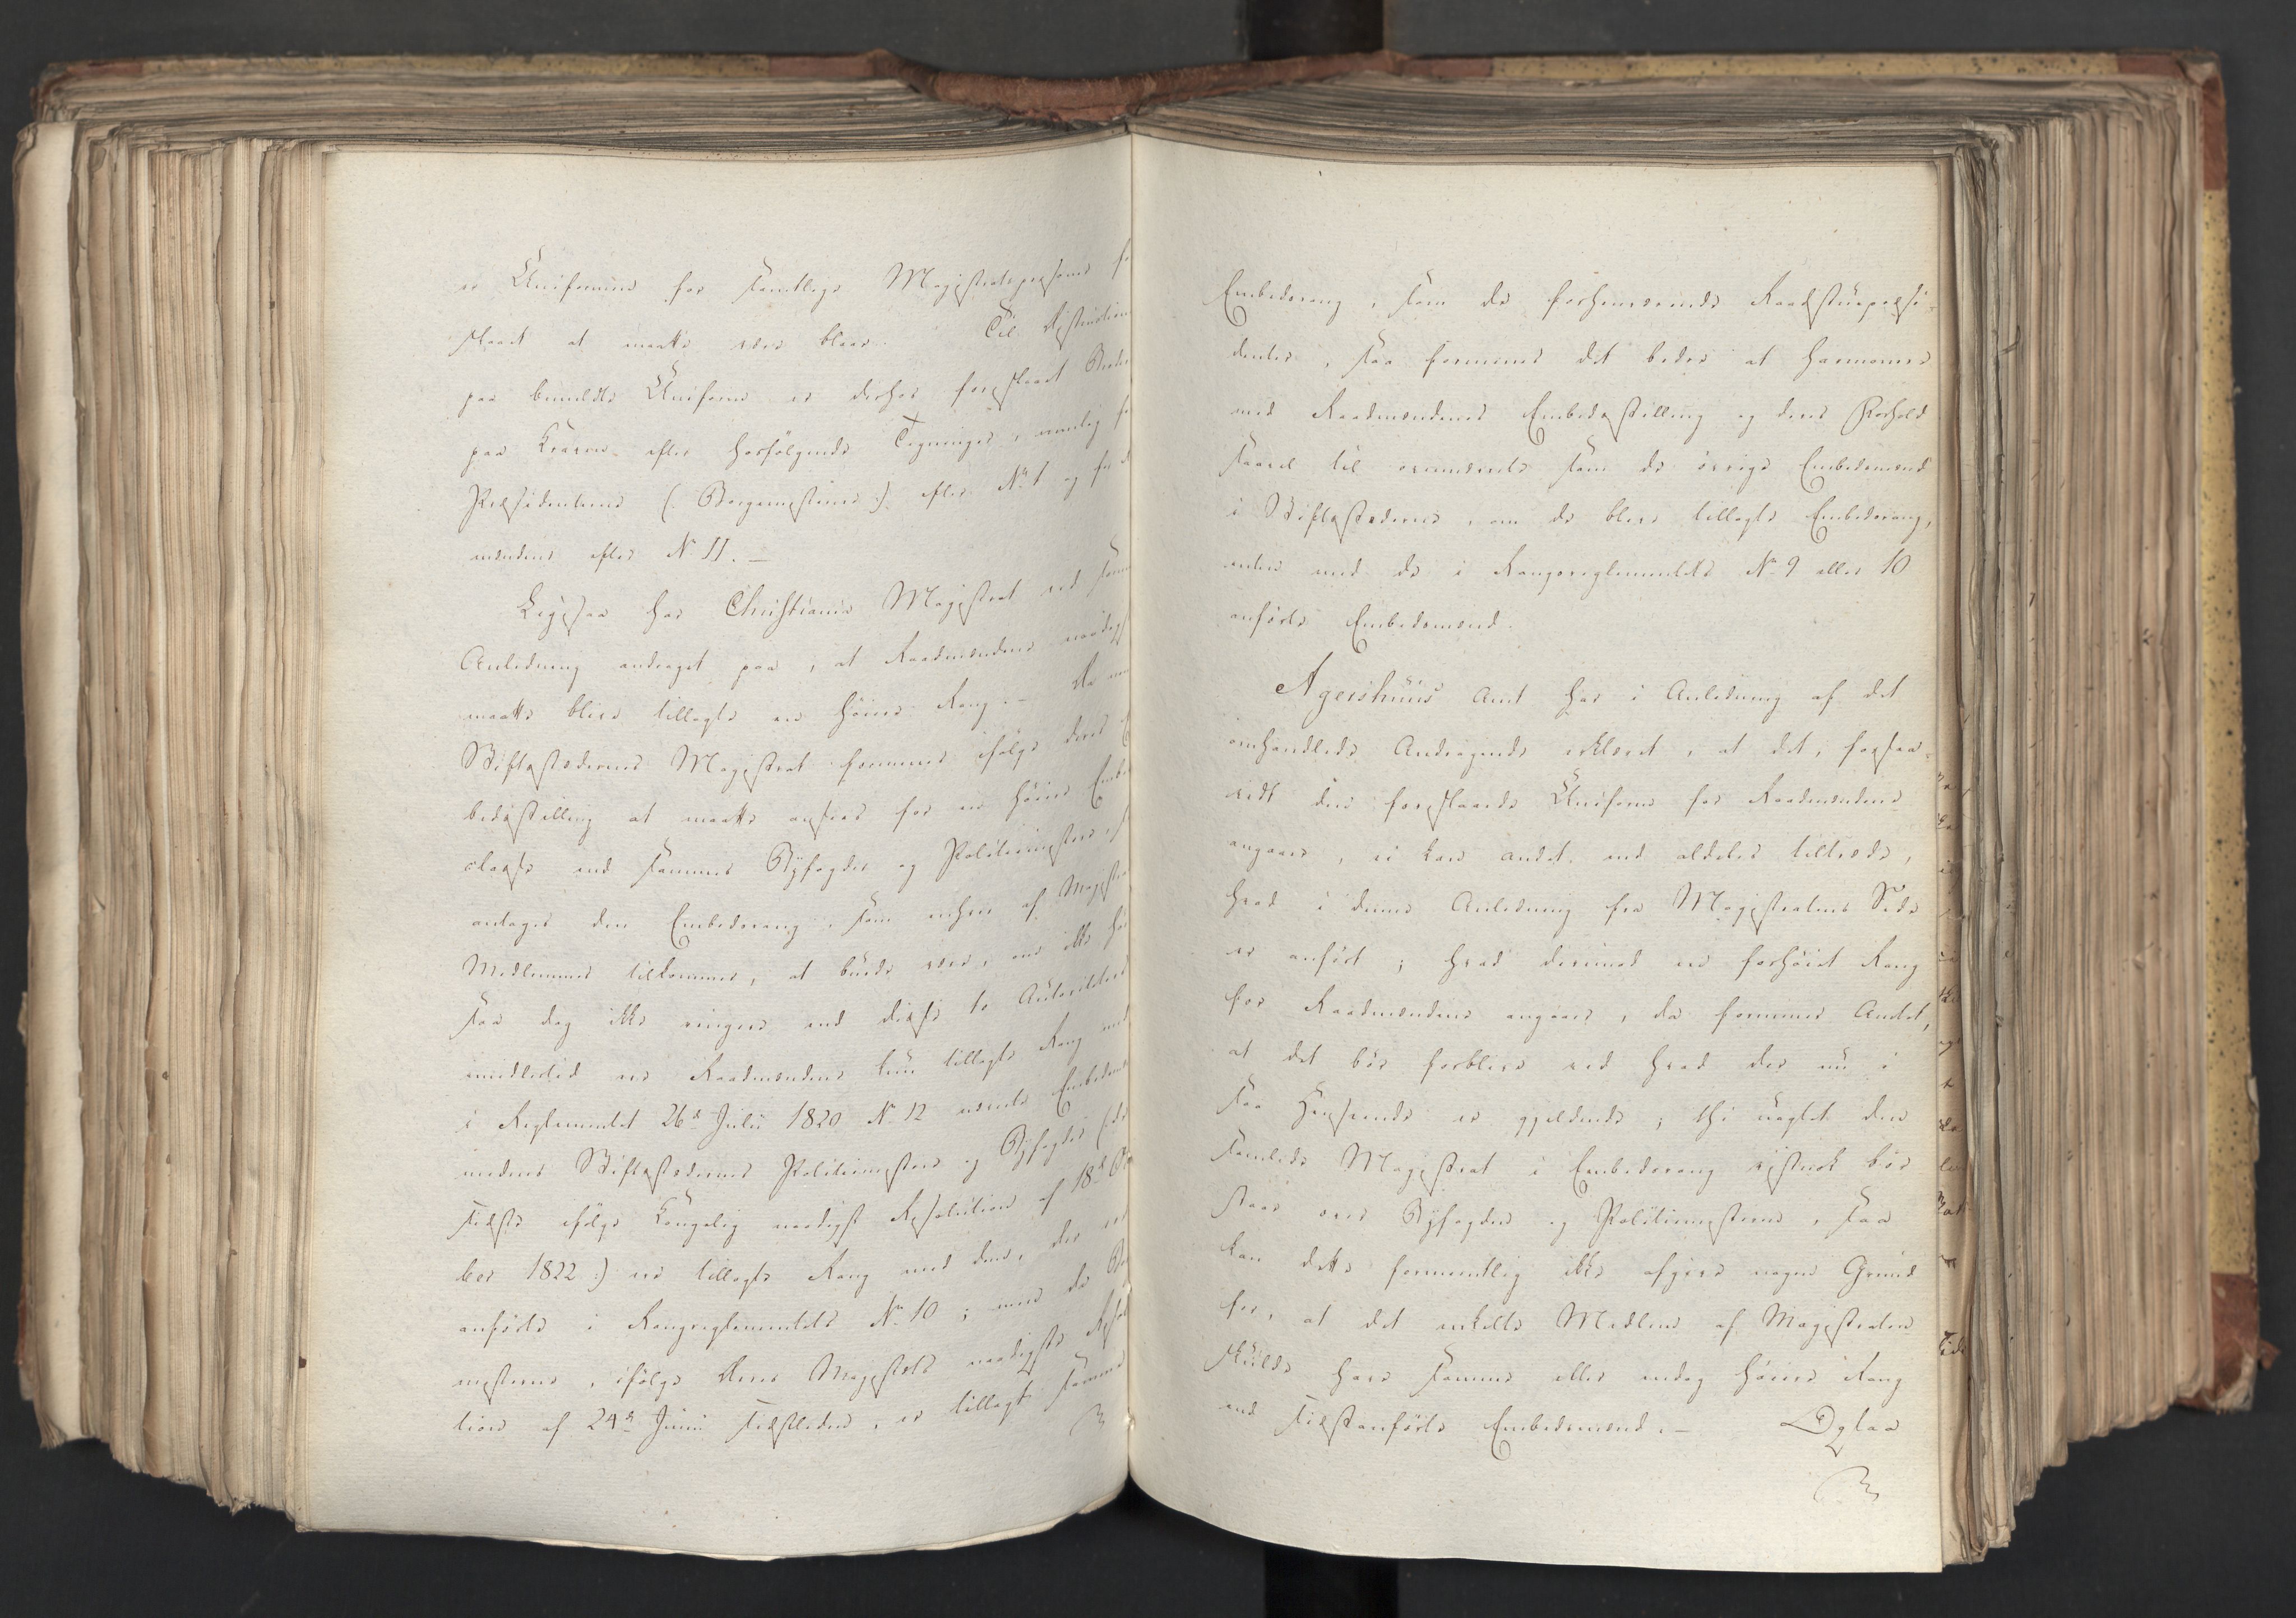 er Uniformen for samtlige Magistratspersoner f
slaaet at maatte være blaae. Til Distinction
paa bemeldte Uniform er derhos foreslaaet Brode
paa Kraven efter hosfølgende Tegninger, nemlig f
Præsidenterne (: Borgermesterne :) efter No I og for
mændene efter No II. —
Ligesaa har Christiania Magistrat ved samme
Anledning andraget paa, at Raadmændene naadigst
maatte blive tillagte en høiere Rang. — Da
Stiftsstædernes Magistrat formenes ifølge deres
bedsstilling at maatte ansees for en høiere Embe
classe end sammes Byfogder og Politiemestere,
antages den Embedsrang, som enhver af Magistra
Medlemmer tilkommer, at burde være, om ikke høi
saa dog ikke ringere end disse to Autoriteter
imidlertid er Raadmændene kun tillagte Rang med
i Reglementet 26de Julii 1820 No 12 nævnte Embedsm
medens Stiftsstædernes Politiemestere og Byfogder (: de
sidste ifølge Kongelig naadigst Resolution af 18de
ber 1822 :) er tillagte Rang med dem, der ere
anførte i Rangreglementets No 10; men da Bor
mesterne, ifølge Deres Majestæts naadigste Resol
tion af 24de Junii sidstleden, er tillagt samme
Embedsrang, som de forhenværende Raadstuepræsi-
denter, saa formenes det bedre at harmonere
med Raadmændenes Embedsstilling og deres Forhold
saavel til ovennævnte som de øvrige Embedsmænd
i Stiftsstæderne, om de bleve tillagte Embedsrang,
enten med de i Rangsreglementets No 9 eller 10
anførte Embedsmænd.
Agershuus Amt har i Anledning af det
omhandlede Andragende erklæret, at det, forsaa-
vidt den foreslaaede Uniform for Raadmændene
angaaer, ei kan andet end aldeles tiltræde,
hvad i denne Anledning fra Magistratens Side
er anført; hvad derimod en forhøiet Rang
for Raadmændene angaaer, da formener Amtet,
at det bør forblive ved hvad der nu i
saa Henseende er gjeldende; thi uagtet den
samlede Magistrat i Embedsrang vistnok bør
staae over Byfogden og Politiemesteren, saa
kan dette formeentlig ikke afgive nogen Grund
for, at det enkelte Medlem af Magistraten
skulde have samme eller endog høiere Rang
end sidstanførte Embedsmænd. — Ogsaa